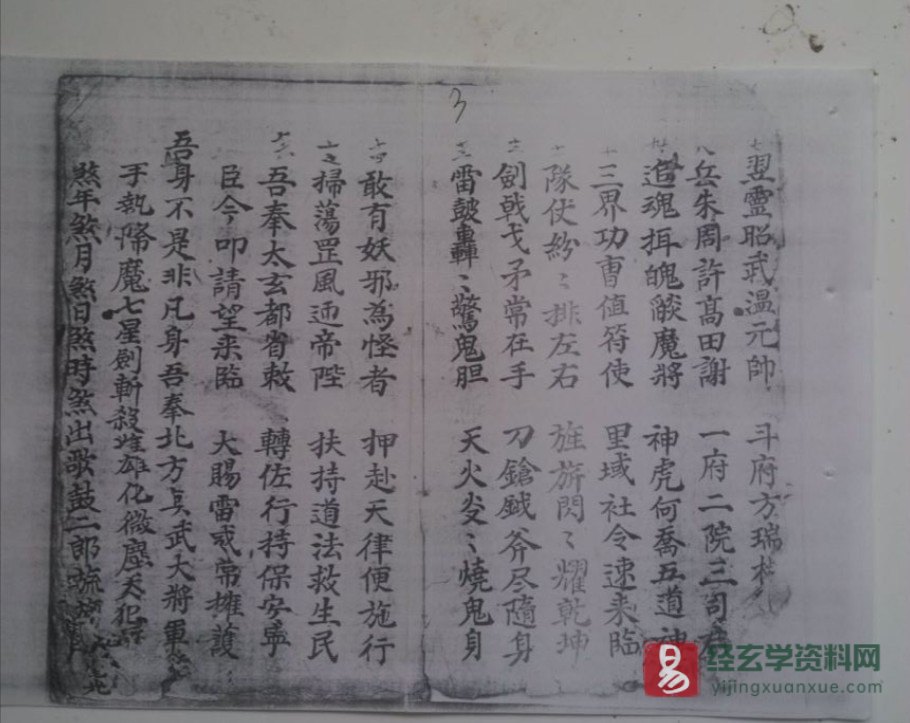 3
翌靈昭武溫元帥 斗府方瑞
岳朱周許高田謝 一府二院三司
追魂挕魄燄魔將 神虎何喬五道神
三界功曹值符使 里域社令速来臨
隊仗紛〻排左右 旌旂閃〻耀乾坤
劍戟戈矛常在手 刀鎗鉞斧尽隨身
雷皷轟〻驚鬼胆 天火炎〻燒鬼身
敢有妖邪為怪者 押赴天律便施行
掃蕩罡風迊帝陛 扶持道法救生民
吾奉太玄都省敕 轉佐行持保安寧
臣今叩請望来臨 大賜雷威常擁護
吾身不是非凡身吾奉北方真武大將軍
手執降魔七星劍斬殺雄化微塵天犯
煞年煞月煞日煞時煞出歌鼓二郎
易
经玄学资料网
yijingxuanxue.com